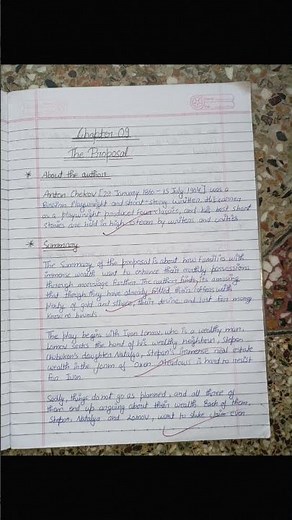 Chapter 09
The Proposal
* About the author:
Anton Chekov [29 January 1860 - 15 July 1904] was a
Russian Playwright and short-story writer. His career
as a playwright produced four classics, and his best short
stories are held in high esteem by writers and critics.
* Summary
The Summary of the proposal is about how families with
immense wealth want to enhance their worldly possessions
through marriage further. The author finds its amusing
that though they have already filled their coffers with
plenty of gold and silver, their desire and lust for money
knows no bounds.
The play begins with Ivan Lomov, who is a wealthy man.
Lomov seeks the hand of his wealthy neighbour, Stepan
Chubukov's daughter, Natalya. Stepan's immense real estate
wealth in the form of 'Oxen Meadows' is hard to resist
for Ivan.
Sadly, things do not go as planned, and all three of
them end up arguing about their wealth. Each of them,
Stepan, Natalya and Lomov, want to stake their